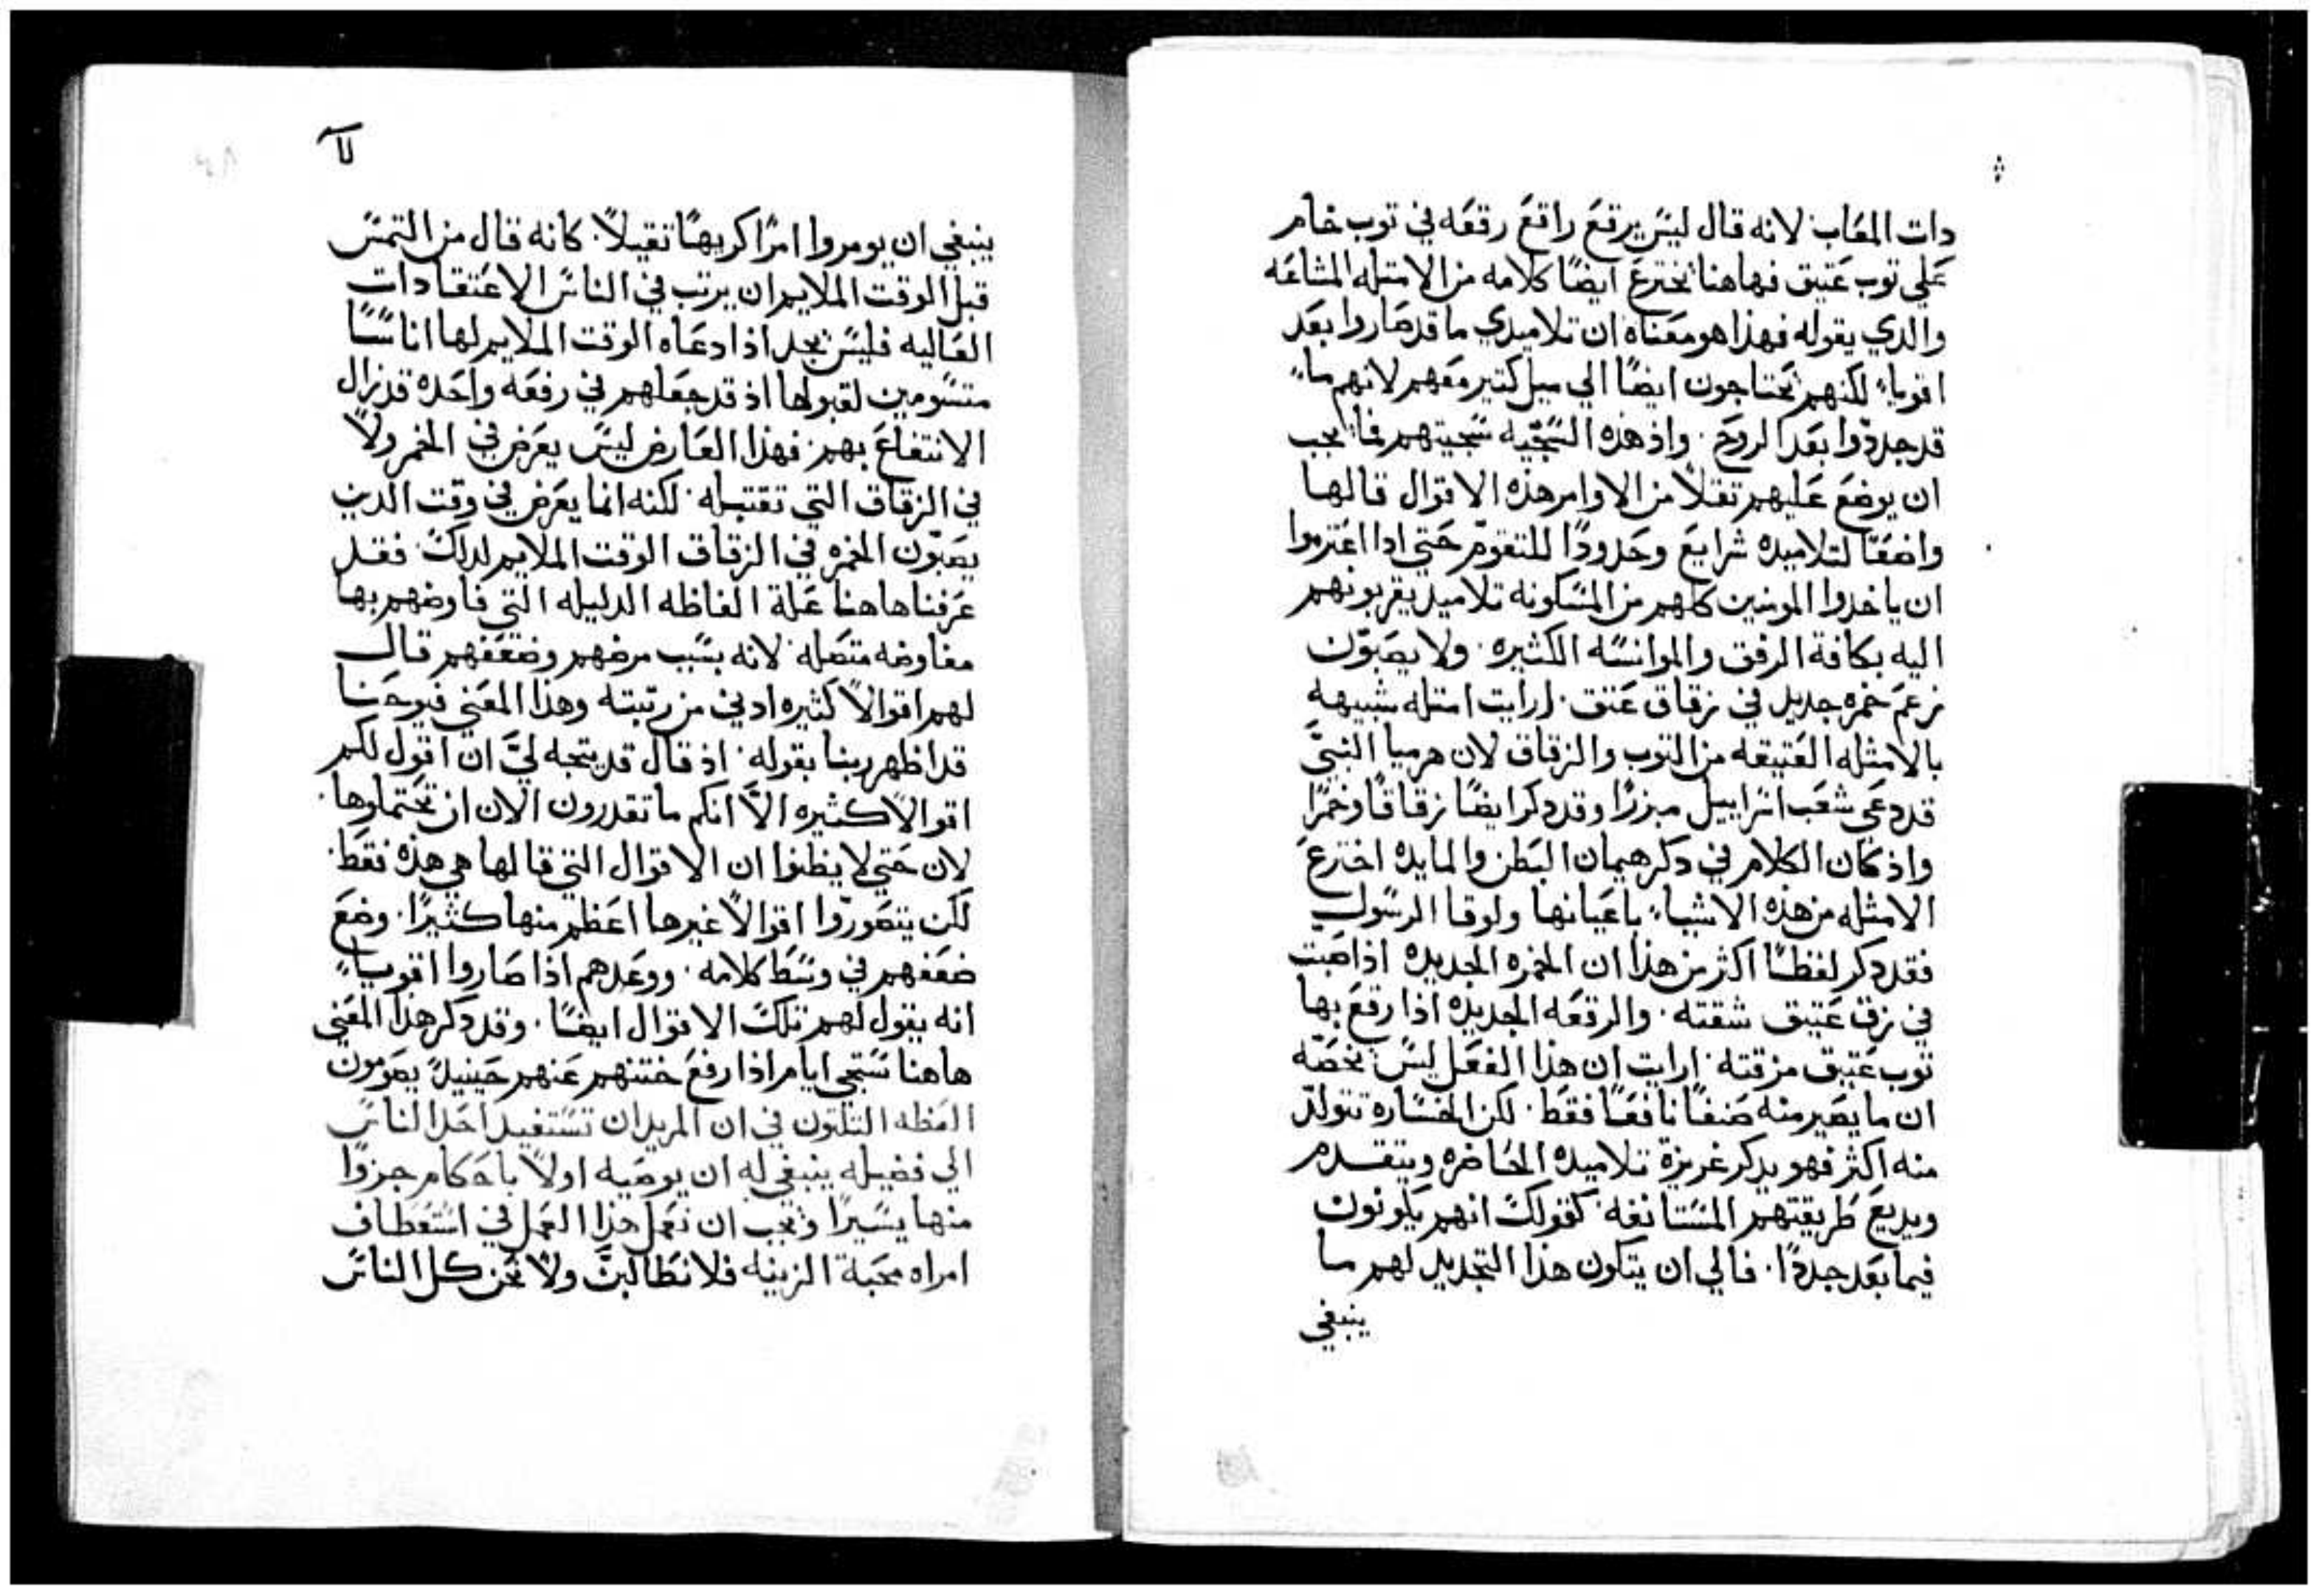 دات المعاب لانه قال ليس يرقع راقع رقعه في توب خام
علي توب عتيق فهاهنا يخترع ايضًا كلامه من الامتله المشاعه
والدي يقوله فهذا هو معناه ان تلاميدي ما قد صاروا بعد
اقويا لكنهم يحتاجون ايضًا الي ميل كتير معهم لانهم ما
قد جددّوا بعد الروح. واذ هذه السجيّه سجيتهم فما يجب
ان يوضع عليهم تقلاً من الاوامر هذه الاقوال قالها
واضعًا لتلاميده شرايع وحدودًا للتقوّم حتي ادا اعتزموا
ان ياخدوا المومنين كلهم من المسكونه تلاميد يقربونهم
اليه بكافة الرفق والموانسه الكثيره. ولا يصبّون
زعم خمره جديد في زقاق عتق. ارايت امتله شبيهه
بالامثله العتيقه من التوب والزقاق لان هرميا النبيّ
قد دعي شعب اسراييل ميزرًا وقد دكر ايضًا زقاقًا وخمرًا
واذ كان الكلام في دكر هيمان البطن والمايده اخترع
الامثله من هذه الاشياء باعيانها ولوقا الرسول
فقد دكر لفظًا اكثر من هذا ان الخمره الجديده اذا صبت
في زق عتيق شقته. والرقعه الجديده اذا رقع بها
توب عتيق مزقته. ارايت ان هذا الفعل ليس يخصّه
ان ما يصير منه صنفًا نافعًا فقط. لكن الخساره تتولدّ
منه اكثر فهو يدكر غريزة تلاميده الحاضره ويتقدم
ويديع طريقتهم المستانفه. كقولك انهم يكونون
فيما بعد جددًا. فالي ان يتكون هذا التجديد لهم ما
ينبغي
لآ
ينبغي ان يومروا امرًا كريهًا تقيلاً. كانه قال من التمس
قبل الوقت الملايم ان يرتب في الناس الاعتقادات
العاليه فليس يجد اذا دعاه الوقت الملايم لها اناسًا
متسومين لقبولها اذ قد جعلهم في رفعه واحده قد زال
الانتفاع بهم. فهذا العارض ليس يعرض في الخمر ولا
في الزقاق التي تقتبله. لكنه انما يعرض في وقت الدين
يصبّون الخمره في الزقاق الوقت الملايم لدلك. فقد
عرفنا هاهنا علة الفاظه الدليله التي فاوضهم بها
مفاوضه متصله. لانه بسبب مرضهم وضعفهم قال
لهم اقوالاً كثيره ادني من رتبته وهذا المعني فيوحنا
قد اظهر ربنا بقوله. اذ قال قد يتجه ليّ ان اقول لكم
اقوالاً كثيره الاّ انكم ما تقدرون الان ان تحتملوها.
لان حتي لا يظنوا ان الاقوال التي قالها هي هذه فقط.
لكن يتصوروّا اقوالاً غيرها اعظم منها كثيرًا. وضع
ضعفهم في وسط كلامه. ووعدهم اذا صاروا اقوياء
انه يقول لهم تلك الاقوال ايضًا. وقد دكر هذا المعني
هاهنا ستجي ايام اذا رفع ختنهم عنهم حينيدً يصومون
العظه التلتون في ان المريد ان تستفيد احد الناس
الي فضيله ينبغي له ان يوصيه اولاً باحكام جزوًا
منها يسيرًا ويجب ان نعمل هذا العمل في استعطاف
امراه محبة الزينه فلا نطالبنّ ولا نحن كل الناس